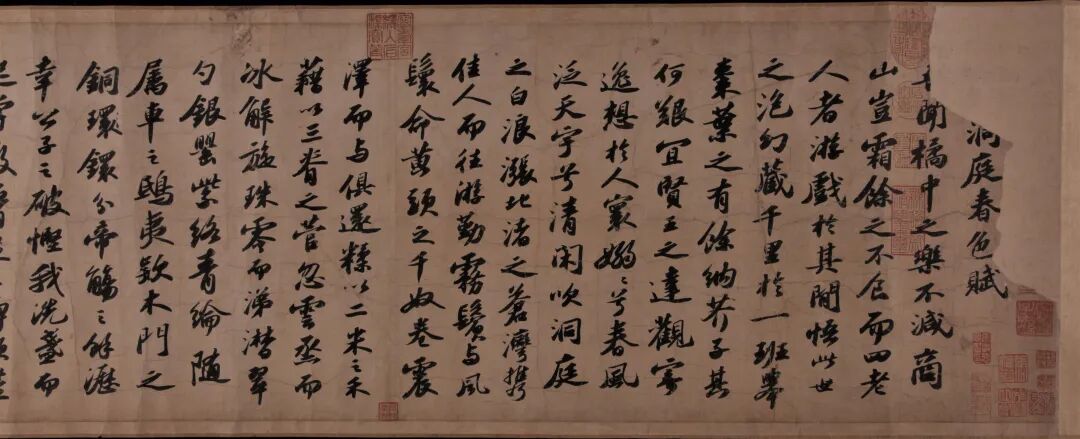 洞庭春色賦
聞橘中之樂不減商
山豈霜餘之不食而四老
人者游戲於其間悟此世
之泡幻藏千里於一班舉
棗葉之有餘納芥子其
何艱宜賢王之達觀寄
逸想於人寰嫋〻兮春風
泛天宇兮清閑吹洞庭
之白浪漲北渚之蒼灣携
佳人而往游勤霧鬢與風
鬟命黃頭之千奴卷震
澤而與俱還糅以二米之禾
藉以三脊之菅忽雲烝而
冰解旋珠零而涕潸翠
勺銀罌紫絡青綸隨
属車之鴟夷款木門之
銅環鐶分帝觴之餘瀝
幸公子之破慳我洗盞而